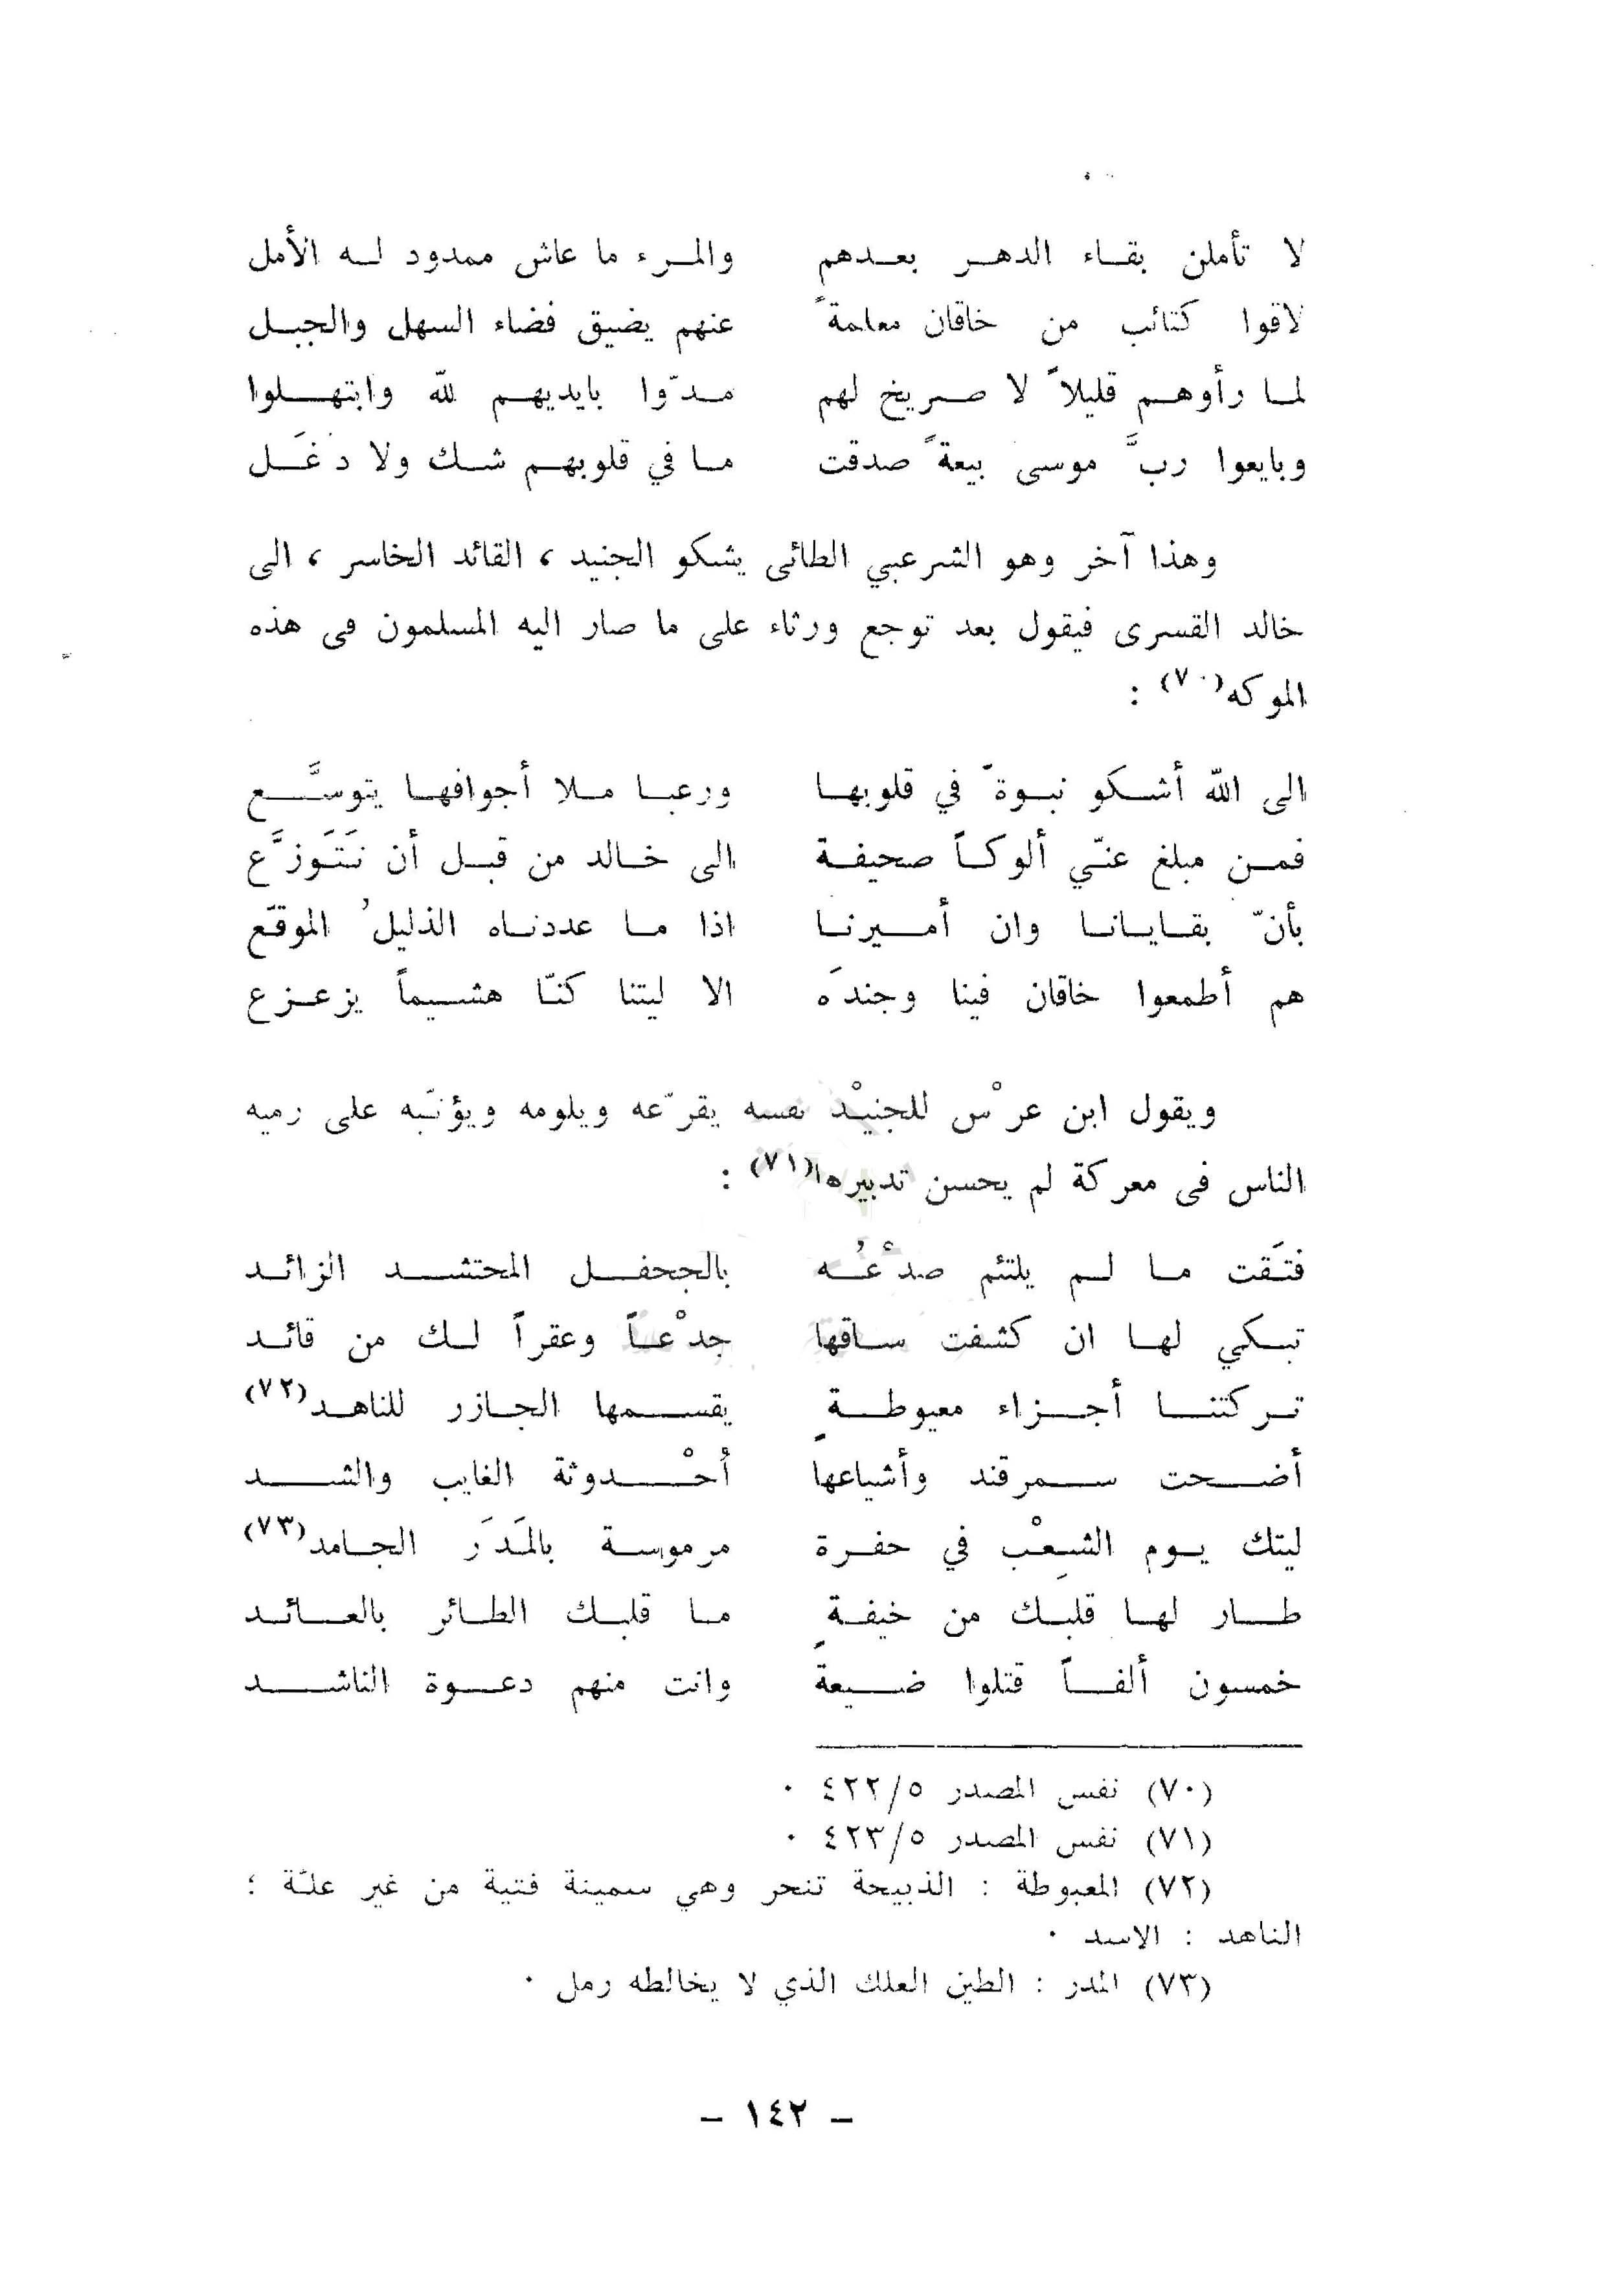 لا تأملن بقاء الدهر بعدهم والمرء ما عاش ممدود له الأمل
لاقوا كتائب من خاقان معلمةً عنهم يضيق فضاء السهل والجبل
لما رأوهم قليلاً لا صريخ لهم مدّوا بايديهم لله وابتهلوا
وبايعوا ربَّ موسى بيعةً صدقت ما في قلوبهم شك ولا دغَل
وهذا آخر وهو الشرعبي الطائى يشكو الجنيد ، القائد الخاسر ، الى
خالد القسرى فيقول بعد توجع ورثاء على ما صار اليه المسلمون فى هذه
الموكه(٧٠) :
الى الله أشكو نبوةً في قلوبها ورعبا ملا أجوافها يتوسَّع
فمن مبلغ عنّي ألوكاً صحيفة الى خالد من قبل أن نَتَوزَّع
بأنّ بقايانا وان أميرنا اذا ما عددناه الذليلُ الموقّع
هم أطمعوا خاقان فينا وجندَه الا ليتنا كنّا هشيماً يزعزع
ويقول ابن عرْس للجنيْد نفسه يقرّعه ويلومه ويؤنّبه على رميه
الناس فى معركة لم يحسن تدبيرها(٧١) :
فتَقت ما لم يلتئم صدْعُه بالجحفل المحتشد الزائد
تبكي لها ان كشفت ساقها جدْعاً وعقراً لك من قائد
تركتنا أجزاء معبوطةٍ يقسمها الجازر للناهد(٧٢)
أضحت سمرقند وأشياعها أحْدوثة الغايب والشد
ليتك يوم الشِعْب في حفرة مرموسة بالمَدَر الجامد(٧٣)
طار لها قلبك من خيفةٍ ما قلبك الطائر بالعائد
خمسون ألفاً قتلوا ضيعةً وانت منهم دعوة الناشد
(٧٠) نفس المصدر ٤٢٢/٥ ٠
(٧١) نفس المصدر ٤٢٣/٥ ٠
(٧٢) المعبوطة : الذبيحة تنحر وهي سمينة فتية من غير علّة ؛
الناهد : الاسد ٠
(٧٣) المدر : الطين العلك الذي لا يخالطه رمل ٠
– ١٤٢ –